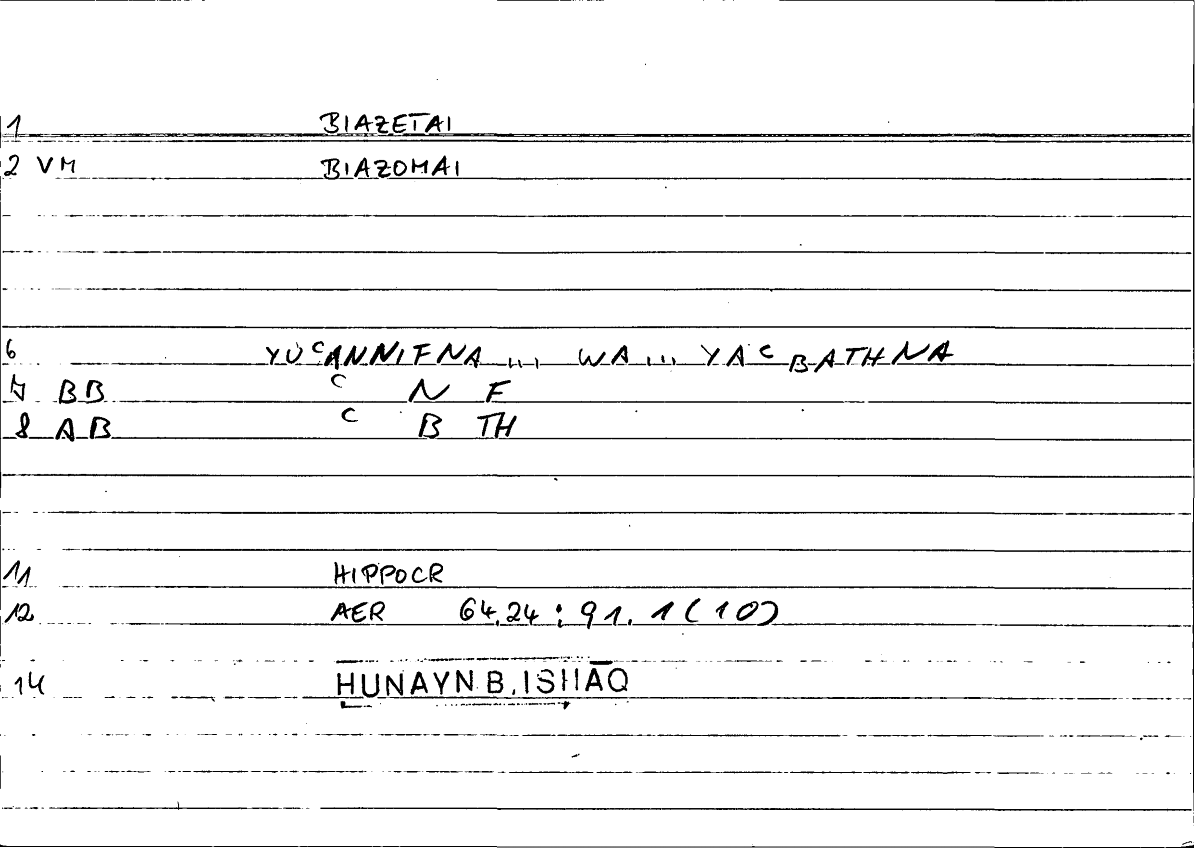 1 BIAZETAI
2 VM BIAZOMAI
6 YUᶜANNIFNA ... WA ... YAᶜBATHNA
7 BB ᶜ N F
8 AB ᶜ B TH
11 HIPPOCR
12 AER 64,24 : 91. 1 (10)
14 HUNAYN B. ISḤĀQ